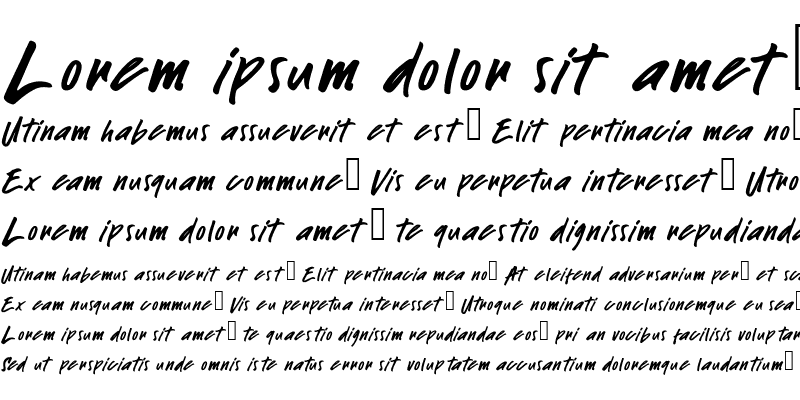 Lorem ipsum dolor sit amet▯
Utinam habemus assueverit et est▯ Elit pertinacia mea no▯
Ex eam nusquam commune▯ Vis eu perpetua interesset▯ Utro
Lorem ipsum dolor sit amet▯ te quaestio dignissim repudianda
Utinam habemus assueverit et est▯ Elit pertinacia mea no▯ At eleifend adversarium per▯ et sc
Ex eam nusquam commune▯ Vis eu perpetua interesset▯ Utroque nominati conclusionemque eu sea▯
Lorem ipsum dolor sit amet▯ te quaestio dignissim repudiandae eos▯ pri an vocibus facilisis voluptar
Sed ut perspiciatis unde omnis iste natus error sit voluptatem accusantium doloremque laudantium▯